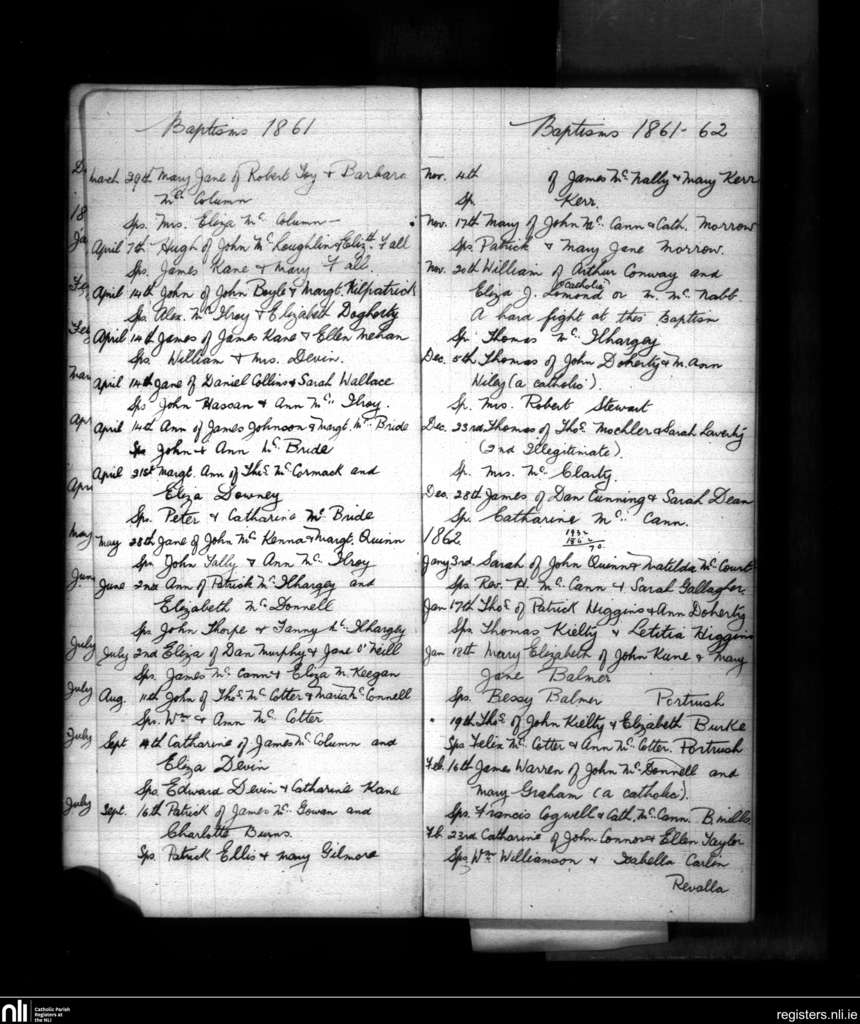 Baptisms 1861
March 29th Mary Jane of Robert Foy & Barbara
McColumn
Sps. Mrs. Eliza McColumn -
April 7th Hugh of John McLoughlin & Elizth. Fall
Sps. James Kane & Mary Fall.
April 14th John of John Boyle & Margt. Kilpatrick
Sps. Alex. McIlroy & Elizabeth Dogherty
April 14th James of James Kane & Ellen Mehan
Sps. William & Mrs. Devin.
April 14th Jane of Daniel Collins & Sarah Wallace
Sps John Hassan & Ann McIlroy.
April 14th Ann of James Johnson & Margt. McBride
Sps John & Ann McBride
April 21st Margt. Ann of Thos McCormack and
Eliza Downey
Sps. Peter & Catharine McBride
May 28th Jane of John McKenna & Margt. Quinn
Sps. John Tally & Ann McIlroy
June 2nd Ann of Patrick McIlhargey and
Elizabeth McDonnell
Sps John Thorpe & Fanny McIlhargey
July 2nd Eliza of Dan Murphy & Jane O'Neill
Sps. James McCann & Eliza M. Keegan
Aug. 11th John of Thos McCotter & Maria McConnell
Sps. Wm & Ann McCotter
Sept 14th Catharine of James McColumn and
Eliza Devin
Sps Edward Devin & Catharine Kane
Sept. 16th Patrick of James McGowan and
Charlotte Burns.
Sps. Patrick Ellis & Mary Gilmore
18
July
July
July
July
Baptisms 1861-62
Nov. 4th of James McNally & Mary Kerr
Sp. Kerr.
Nov. 17th Mary of John McCann & Cath. Morrow
Sps Patrick & Mary Jane Morrow.
Nov. 20th William of Arthur Conway and
(Catholic)
Eliza J. Lomond or McNabb
A hard fight at this Baptism
Sp. Thomas McIlhargey
Dec. 5th Thomas of John Doherty & M. Ann
Wiley (a catholic).
Sp. Mrs. Robert Stewart
Dec. 23rd Thomas of Thos. Mochler & Sarah Laverty
(2nd Illegitimate).
Sp. Mrs. McClarty.
Dec. 28th James of Dan Cunning & Sarah Dean
Sp. Catharine McCann.
1862
1932
1862
70
Jany 3rd. Sarah of John Quinn & Matilda McCourt
Sps Rev. H. McCann & Sarah Gallagher
Jan 17th Thos of Patrick Higgins & Ann Doherty
Sps Thomas Kielty & Letitia Higgins
Jan 12th Mary Elizabeth of John Kane & Mary
Jane Balmer
Sps. Bessy Balmer Portrush
19th Thos of John Kielty & Elizabeth Burke
Sps Felix McCotter & Ann McCotter. Portrush
Feb. 16th James Warren of John McDonnell and
Mary Graham (a catholic).
Sps. Francis Cogwell & Cath. McCann. Bmills.
Fb. 23rd Catharine of John Connor & Ellen Taylor
Sps Wm Williamson & Isabella Carlin
Revalla
nli
Catholic Parish
Registers at
the NLI
registers.nli.ie